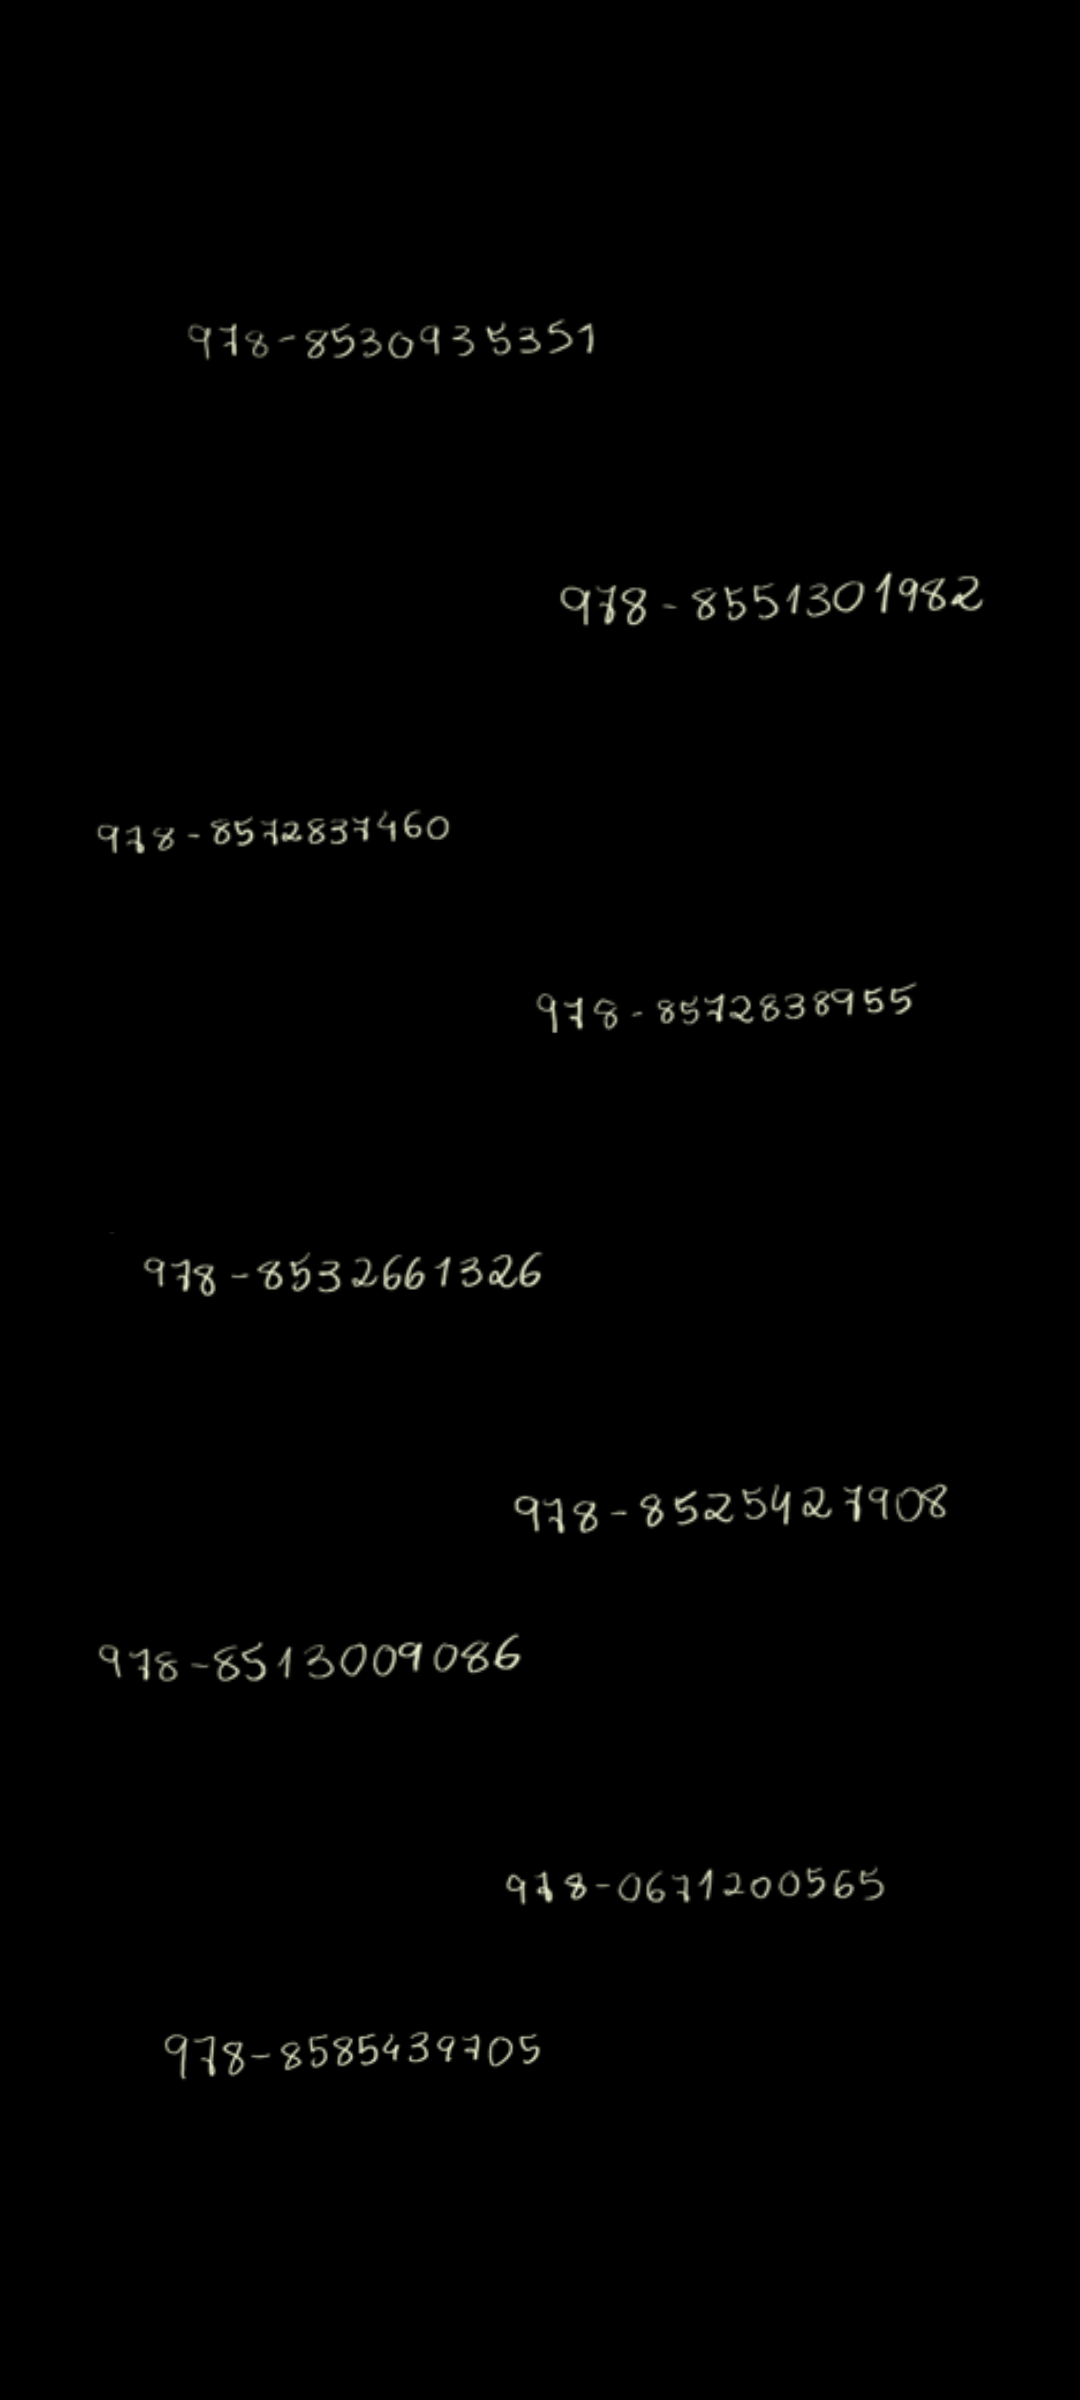 978-8530935351
978-8551301982
978-8572837460
978-8572838955
978-8532661326
978-8525427908
978-8513009086
978-0671200565
978-8585439705